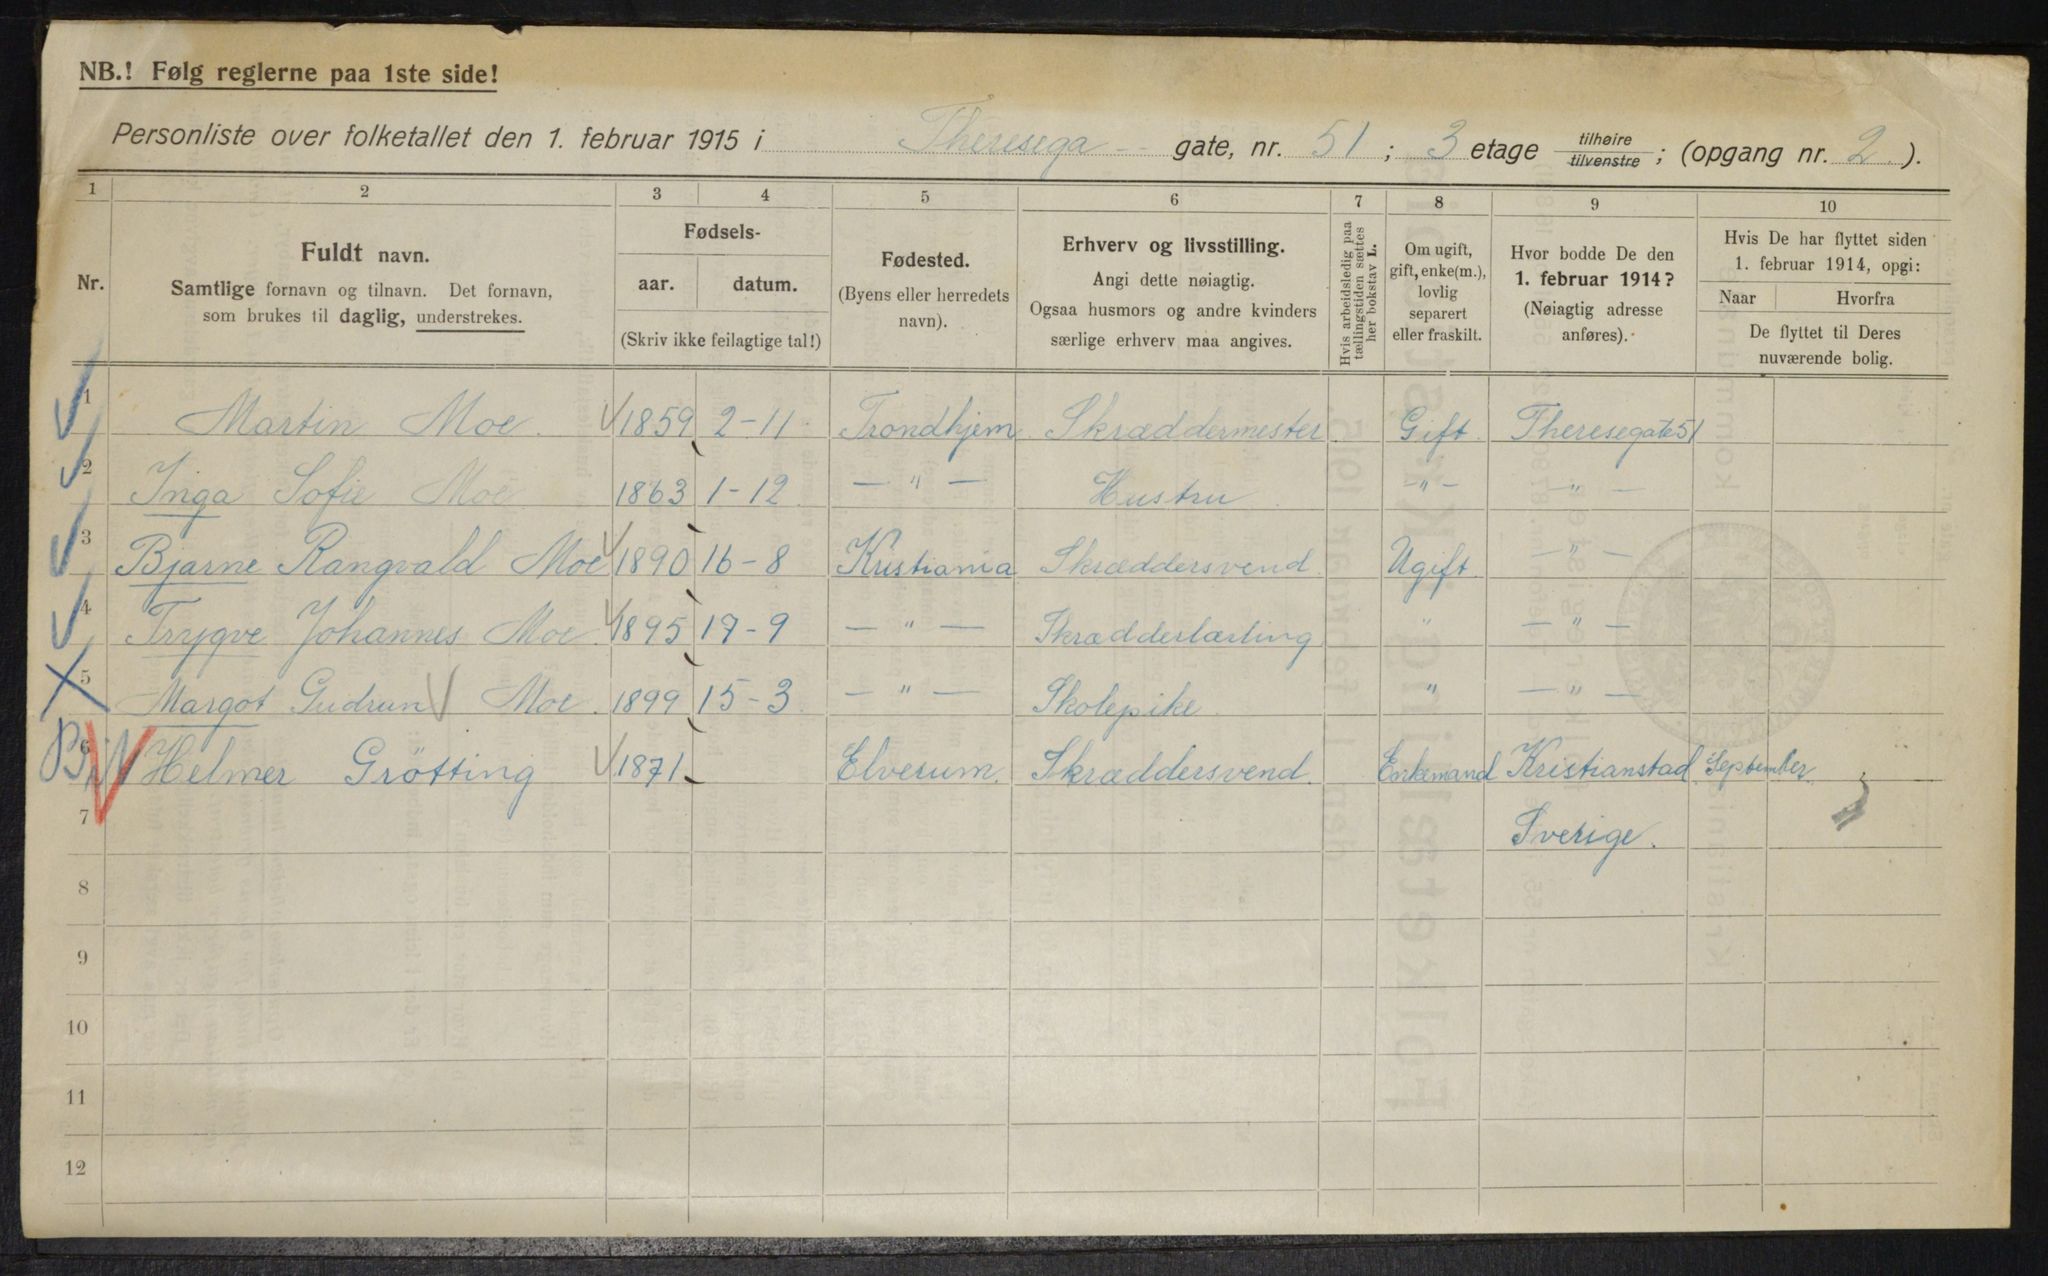 NB.! Følg reglerne paa 1ste side!
Personliste over folketallet den 1. februar 1915 i Theresega -- gate, nr. 51 ; 3 etage tilhøire / tilvenstre ; (opgang nr. 2 ).
1 2 3 4 5 6 7 8 9 10
Nr.
Fuldt navn.
Samtlige fornavn og tilnavn. Det fornavn,
som brukes til daglig, understrekes.
Fødsels-
aar. datum.
(Skriv ikke feilagtige tal!)
Fødested.
(Byens eller herredets
navn).
Erhverv og livsstilling.
Angi dette nøiagtig.
Ogsaa husmors og andre kvinders
særlige erhverv maa angives.
Hvis arbeidsledig paa
tællingstiden sættes
her bokstav L.
Om ugift,
gift, enke(m.),
lovlig
separert
eller fraskilt.
Hvor bodde De den
1. februar 1914?
(Nøiagtig adresse
anføres).
Hvis De har flyttet siden
1. februar 1914, opgi:
Naar Hvorfra
De flyttet til Deres
nuværende bolig.
1 Martin Moe 1859 2-11 Trondhjem Skræddermester Gift Theresegate 51
2 Inga Sofie Moe 1863 1-12 — " — Hustru -"- — " —
3 Bjarne Rangvald Moe 1890 16-8 Kristiania Skræddersvend Ugift — " —
4 Trygve Johannes Moe 1895 19-9 — " — Skrædderlærling " — " —
5 Margot Gudrun Moe 1899 15-3 — " — Skolepike " — " —
6 Helmer Grötting 1871 Elverum. Skræddersvend. Enkemand Kristianstad September.
7 Sverige.
8
9
10
11
12